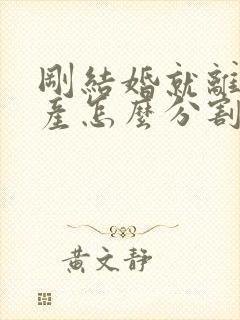 剛結婚就離
產怎麼分割
黃文靜